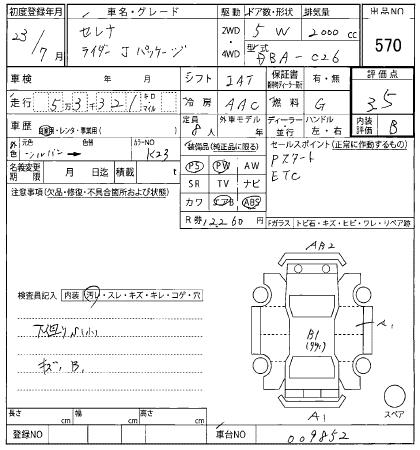 初度登録年月 車名・グレード 駆動 ドア数・形状 排気量 出品NO
23/7月 セレナ 2WD・4WD 5 W 2000 cc 570
ライダー J パッケージ 型式 DBA-C26
車検 年 月 シフト IAT 保証書 有・無 評価点
走行 53321 キロ マイル 冷房 AAC 燃料 G 3.5
車歴 自家用・レンタ・事業用( ) 定員 8人 外車モデル年 年 ディーラー 並行 ハンドル 左・右 内装評価 B
外色 元色 シルバー 色替 カラーNO K23 装備品(純正品に限る) セールスポイント(正常に作動するもの)
名義変更期限 月 日迄 積載 t PS PW AW Pスタート
注意事項(欠品・修復・不具合箇所および状態) SR TV ナビ ETC
カワ エアB ABS
R券 12260 円 Fガラス トビ石・キズ・ヒビ・ワレ・リペア跡
AB2
検査員記入 内装 汚レ・スレ・キズ・キレ・コゲ・穴
下廻り
キズ, B.
B1
A1
スペア
長さ cm 幅 cm 高さ cm A1
登録NO 車台NO 009852